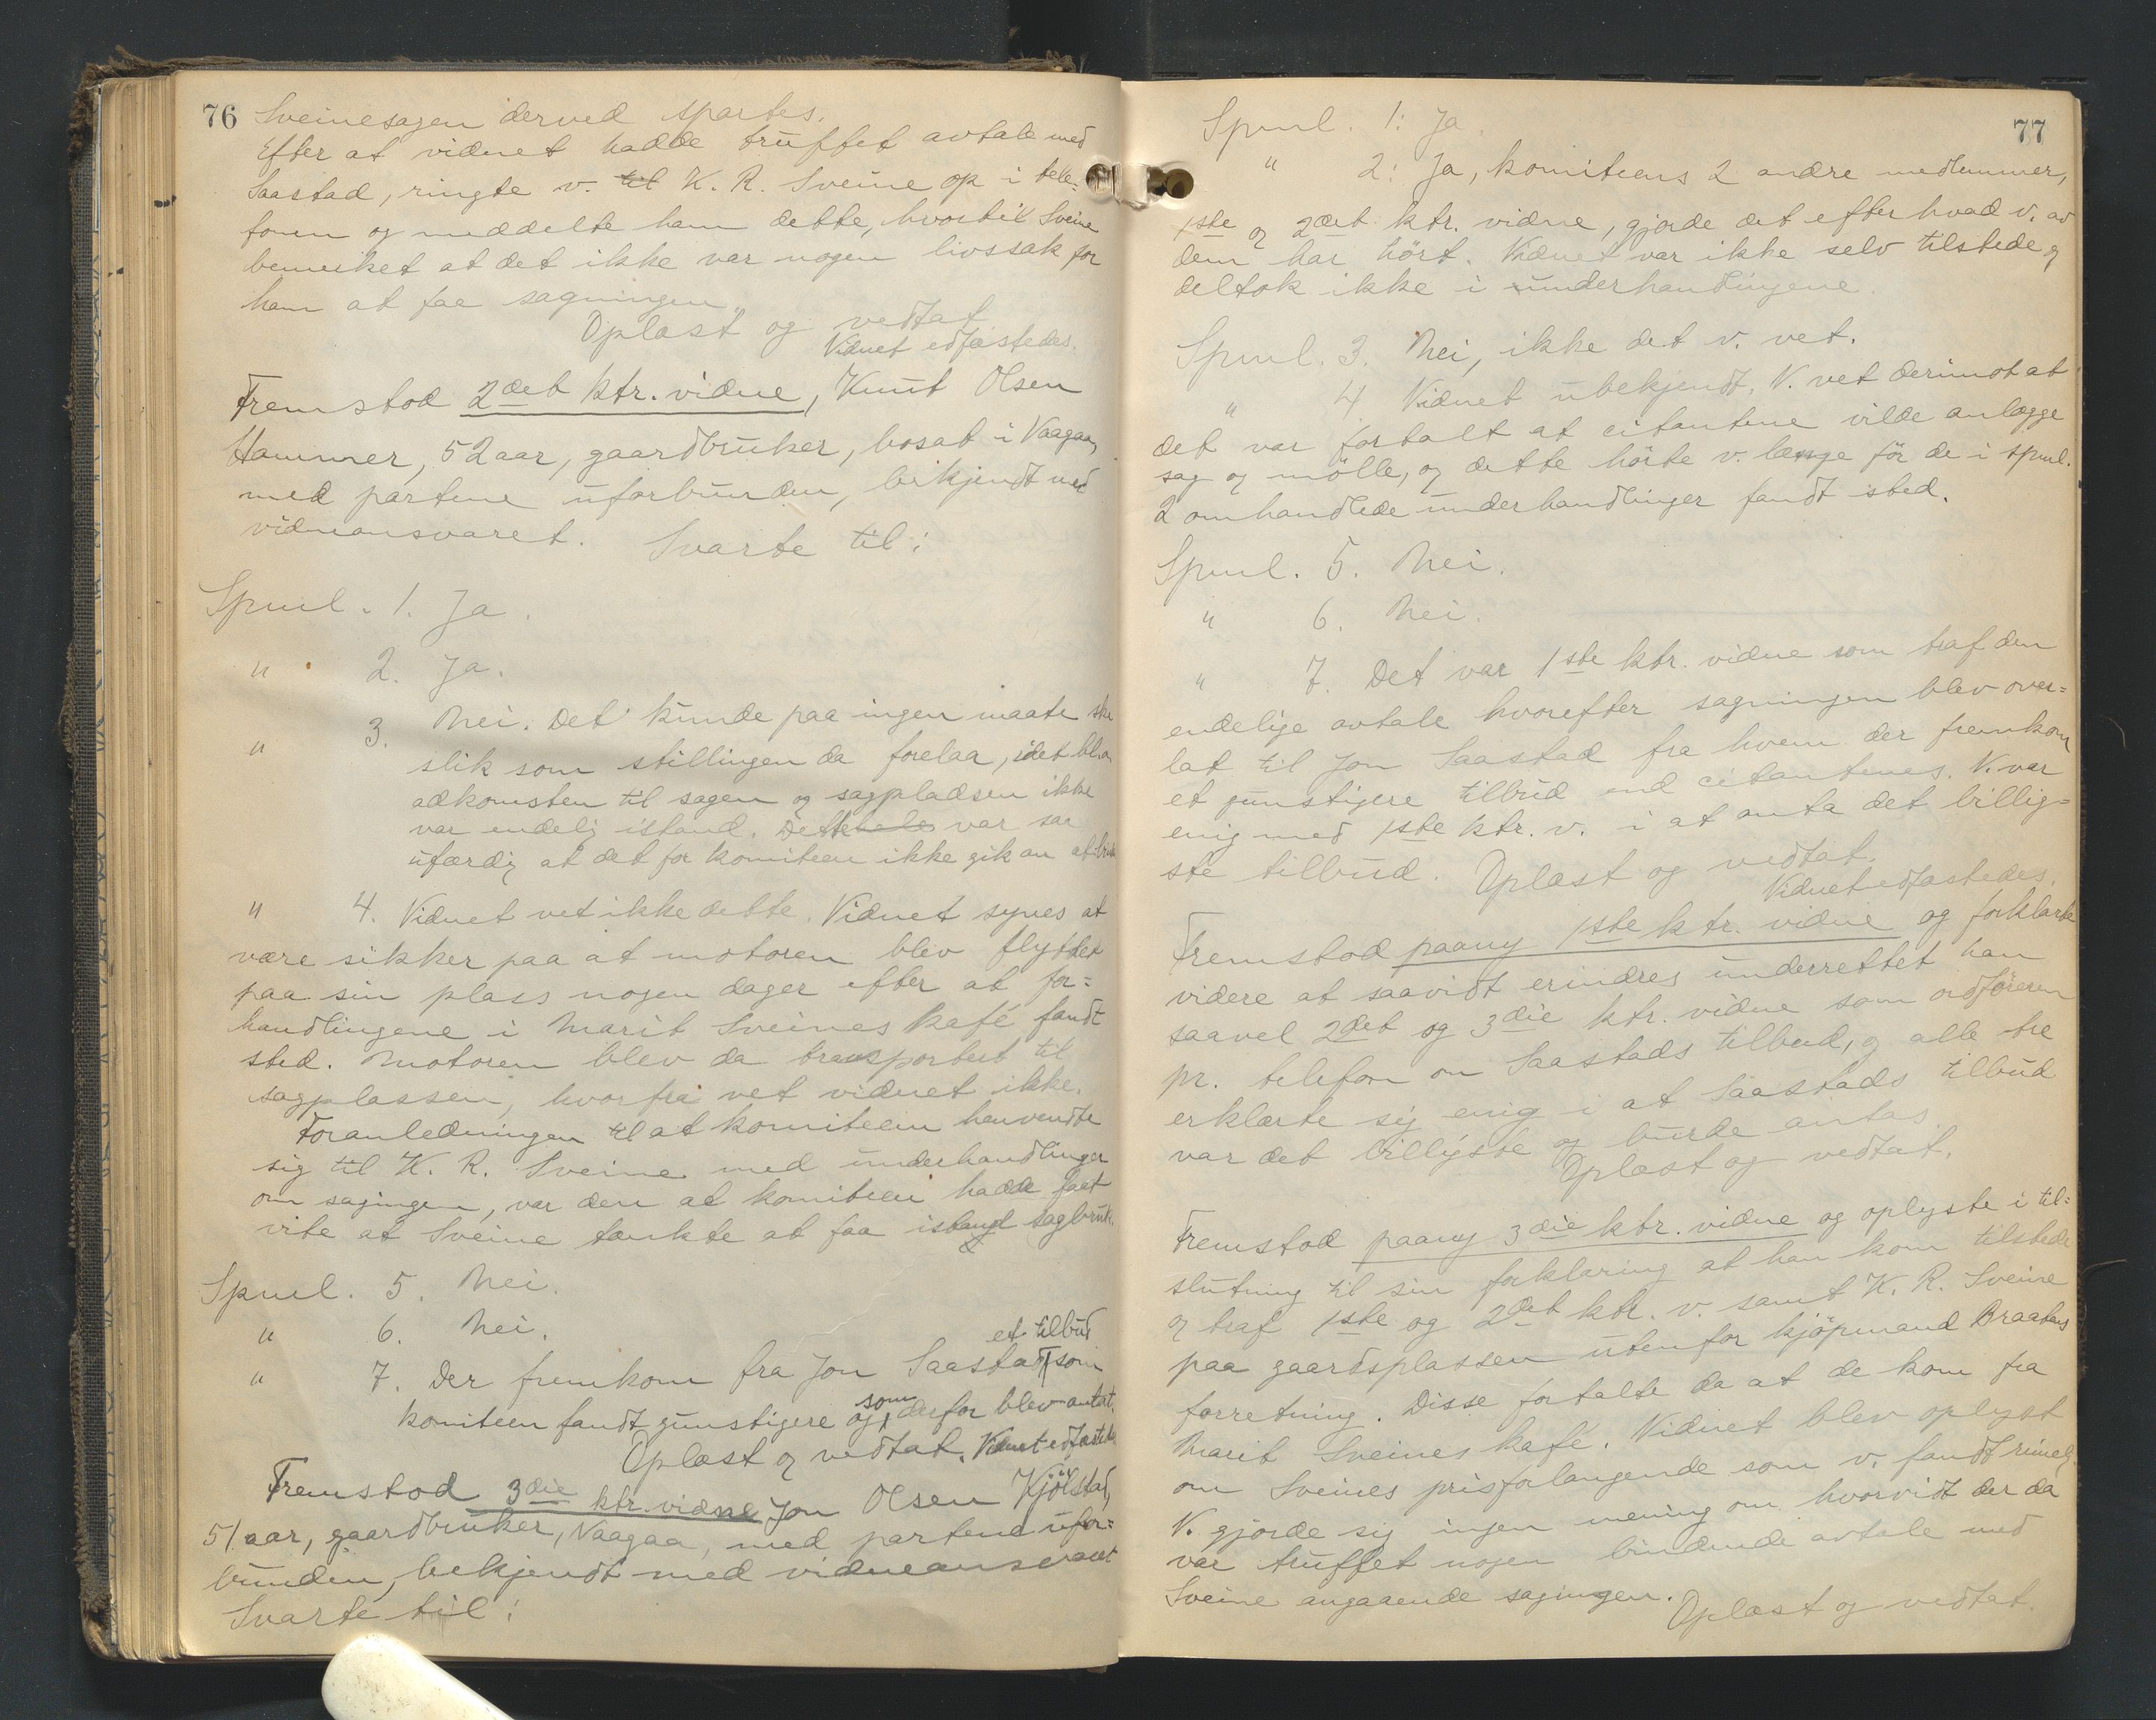 76
Sveinesagen derved spartes.
Efter at vidnet hadde truffet avtale med
Saastad, ringte v. til K. R. Sveine op i tele-
fonen og meddelte ham dette, hvortil Sveine
bemerket at det ikke var nogen livssak for
ham at faa sagningen.
Oplæst og vedtat
Vidnet edfæstedes.
Fremstod 2det ktr. vidne, Knut Olsen
Hammer, 52 aar, gaardbruker, bosat i Vaagaa,
med partene uforbunden, bekjendt med
vidneansvaret. Svarte til:
Spml. 1. Ja.
" 2. Ja.
" 3. Nei. Det kunde paa ingen maate ske
slik som stillingen da forelaa, idet bl.a.
adkomsten til sagen og sagpladsen ikke
var endelig istand. Dette var saa
ufærdig at det for komiteen ikke gik an at
" 4. Vidnet vet ikke dette. Vidnet synes at
være sikker paa at motoren blev flyttet
paa sin plass nogen dager efter at for=
handlingene i Marit Sveines kafé fandt
sted. Motoren blev da transportert til
sagplassen, hvorfra vet vidnet ikke.
Foranledningen til at komiteen henvendte
sig til K. R. Sveine med underhandlinger
om sagingen, var den at komiteen hadde faat
vite at Sveine tænkte at faa istand sagbruk.
Spml. 5. Nei.
" 6. Nei.
" 7. Der fremkom fra Jon Saastad et tilbud som
komiteen fandt gunstigere og som derfor blev antat.
Oplæst og vedtat. Vidnet edfæstedes
Fremstod 3die ktr. vidne Jon Olsen Kjölstad,
51 aar, gaardbruker, Vaagaa, med partene ufor=
bunden, bekjendt med vidneansvaret
Svarte til:
77
Spml. 1: Ja.
" 2: Ja, komiteens 2 andre medlemmer,
1ste og 2det ktr. vidne, gjorde det efter hvad v. av
dem har hört. Vidnet var ikke selv tilstede og
deltok ikke i underhandlingene.
Spml. 3. Nei, ikke det v. vet.
" 4 Vidnet ubekjendt. V. vet derimot at
det var fortalt at citantene vilde anlægge
sag og mölle, og dette hörte v. længe för de i spml.
2 omhandlede underhandlinger fandt sted.
Spml. 5. Nei.
" 6. Nei.
" 7. Det var 1ste ktr. vidne som traf den
endelige avtale hvorefter sagningen blev over=
lat til Jon Saastad fra hvem der fremkom
et gunstigere tilbud end citantenes. V. var
enig med 1ste ktr. v. i at anta det billig=
ste tilbud. Oplæst og vedtat.
Vidnet edfæstedes.
Fremstod paany 1ste ktr. vidne og forklarte
videre at saavidt erindres underrettet han
saavel 2det og 3die ktr. vidne som ordföreren
pr. telefon om Saastads tilbud, og alle tre
erklærte sig enig i at Saastads tilbud
var det billigste og burde antas.
Oplæst og vedtat.
Fremstod paany 3die ktr. vidne og oplyste i til=
slutning til sin forklaring at han kom tilstede
og traf 1ste og 2det ktr. v. samt K. R. Sveine
paa gaardsplassen utenfor kjöpmand Braatens
forretning. Disse fortalte da at de kom fra
Marit Sveines kafé. Vidnet blev oplyst
om Sveines prisforlangende som v. fandt rimelig.
V. gjorde sig ingen mening om hvorvidt der da
var truffet nogen bindende avtale med
Sveine angaaende sagingen.
Oplæst og vedtat.